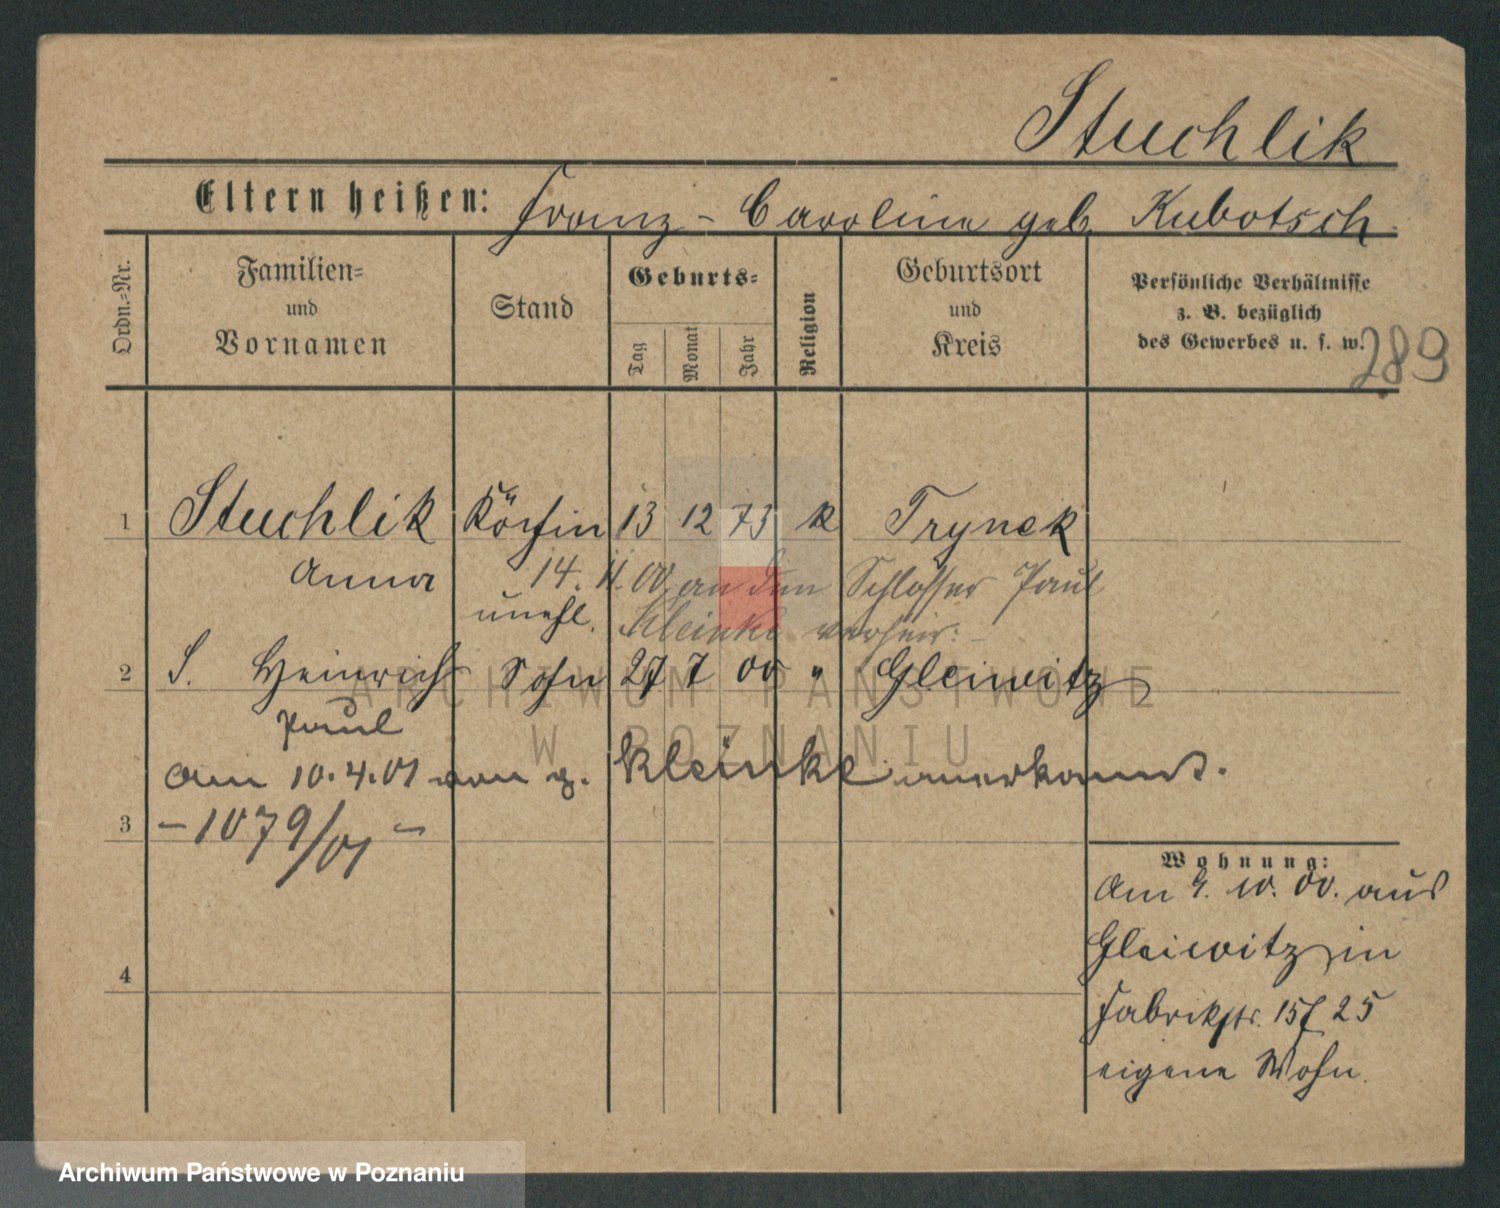 Stuchlik
Eltern heißen: Franz - Caroline geb. Kubotsch.
Ordn.-Nr.
Familien- und Vornamen
Stand
Geburts-
Tag
Monat
Jahr
Religion
Geburtsort und Kreis
Persönliche Verhältnisse
z. B. bezüglich
des Gewerbes u. s. w.
289
1 Stuchlik Köchin 13 12 73 k Trynek
Anna
14. 11. 00 an den Schlosser Paul
unehl. Kleinke verheir: -
2 S. Heinrich Sohn 27 7 00 " Gleiwitz
Paul
Am 10.4.01 von g. Kleinke anerkannt.
3 - 1079/01 -
Wohnung:
Am 9. 10. 00. aus
Gleiwitz in
Fabrikstr. 15
25
eigene Wohn.
4
ARCHIWUM PAŃSTWOWE
W POZNANIU
Archiwum Państwowe w Poznaniu